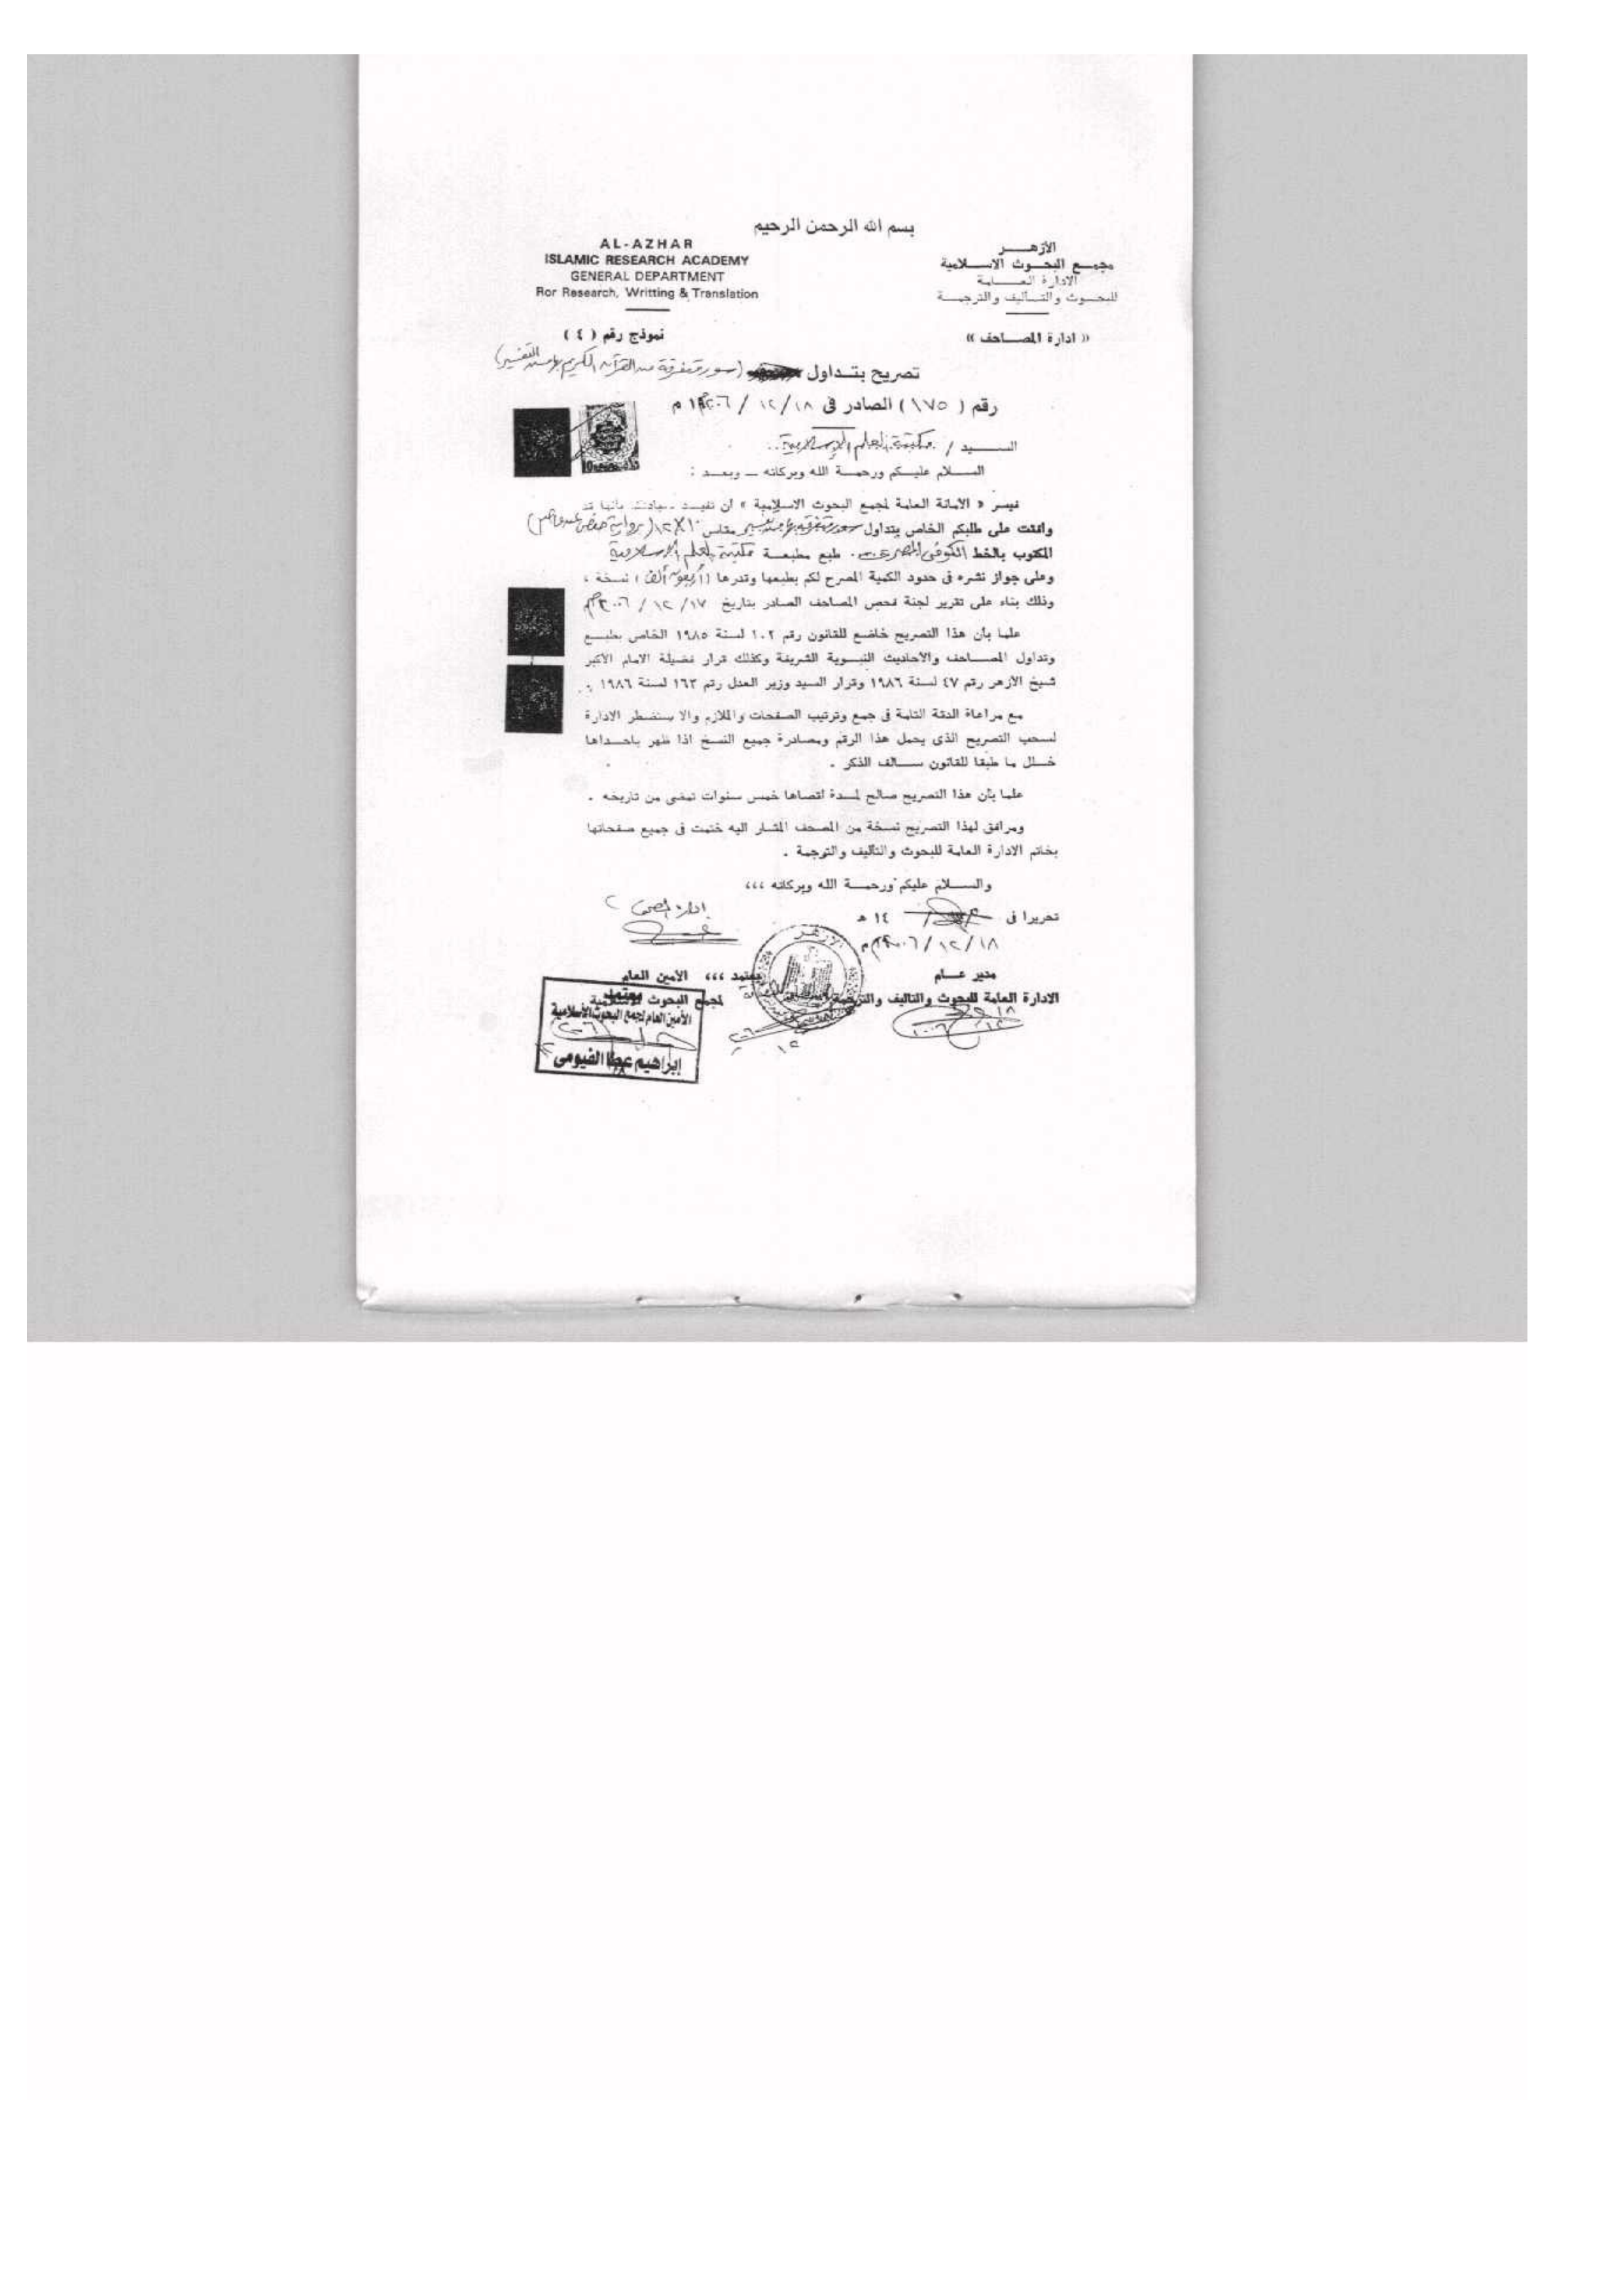 بسم الله الرحمن الرحيم
الأزهــــر
مجمــع البحــوث الاســلامية
الادارة العــــامة
للبحــوث والتــأليف والترجمــة
AL-AZHAR
ISLAMIC RESEARCH ACADEMY
GENERAL DEPARTMENT
Ror Research, Writting & Translation
« ادارة المصــاحف »
نموذج رقم ( ٤ )
تصريح بتــداول (سور متفرقة من القرآن الكريم بهامشه التفسير)
رقم ( ١٧٥ ) الصادر فى ١٨ / ١٢ / ٢٠٠٦ م
الســــيد / مكتبة العلم الإسلامية
السـلام عليـكم ورحمـة الله وبركاته ــ وبعــد :
نيسر « الأمانة العامة لمجمع البحوث الاسلامية » ان تفيــد سيادتكم بأنها قد
وافقت على طلبكم الخاص بتداول سور متفرقة بهامشه مقاس ١٠×١٢ (برواية حفص عن عاصم)
المكتوب بالخط الكوفى المصرى . طبع مطبعــة مكتبة العلم الإسلامية
وعلى جواز نشره فى حدود الكمية المصرح لكم بطبعها وقدرها (أربعون ألف) نسخة ،
وذلك بناء على تقرير لجنة فحص المصاحف الصادر بتاريخ ١٧ / ١٢ / ٢٠٠٦ م
علما بأن هذا التصريح خاضع للقانون رقم ١٠٢ لسنة ١٩٨٥ الخاص بطبــع
وتداول المصــاحف والأحاديث النبــوية الشريفة وكذلك قرار فضيلة الامام الأكبر
شيخ الأزهر رقم ٤٧ لسنة ١٩٨٦ وقرار السيد وزير العدل رقم ١٦٣ لسنة ١٩٨٦ .
مع مراعاة الدقة التامة فى جمع وترتيب الصفحات والملازم والا ستضطر الادارة
لسحب التصريح الذى يحمل هذا الرقم ومصادرة جميع النسخ اذا ظهر باحــداها
خــلل ما طبقا للقانون ســالف الذكر .
علما بأن هذا التصريح صالح لمدة اقصاها خمس سنوات تمضى من تاريخه .
ومرافق لهذا التصريح نسخة من المصحف المشار اليه ختمت فى جميع صفحاتها
بخاتم الادارة العامة للبحوث والتأليف والترجمة .
والســلام عليكم ورحمــة الله وبركاته ،،،
تحريرا فى ١٤ هـ
١٨ / ١٢ / ٢٠٠٦ م
مدير عــام
الادارة العامة للبحوث والتاليف والترجمة
يعتمد ،،، الأمين العام
لمجمع البحوث الاسلامية
يعتمد
الأمين العام لمجمع البحوث الأسلامية
إبراهيم عطا الفيومى